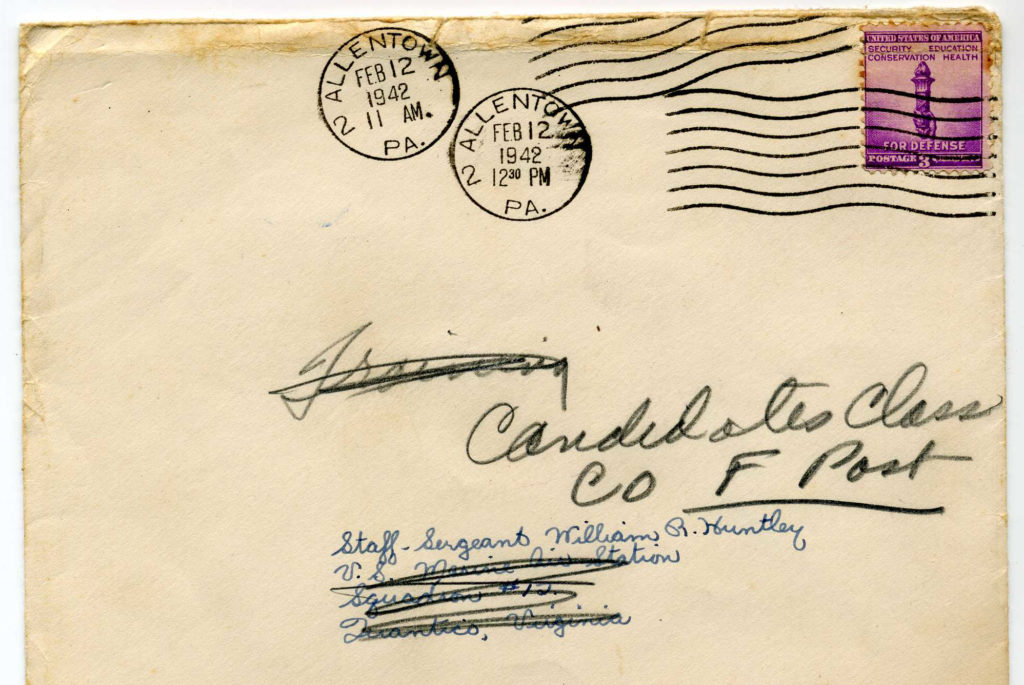 ALLENTOWN
FEB 12
1942
11 AM.
2
PA.
ALLENTOWN
FEB 12
1942
12 30 PM
2
PA.
UNITED STATES OF AMERICA
SECURITY EDUCATION
CONSERVATION HEALTH
FOR DEFENSE
POSTAGE 3
Training
Candidates Class
CO F Post
Staff-Sergeant William R. Huntley
U. S. Marine Air Station
Squadron #12.
Quantico, Virginia